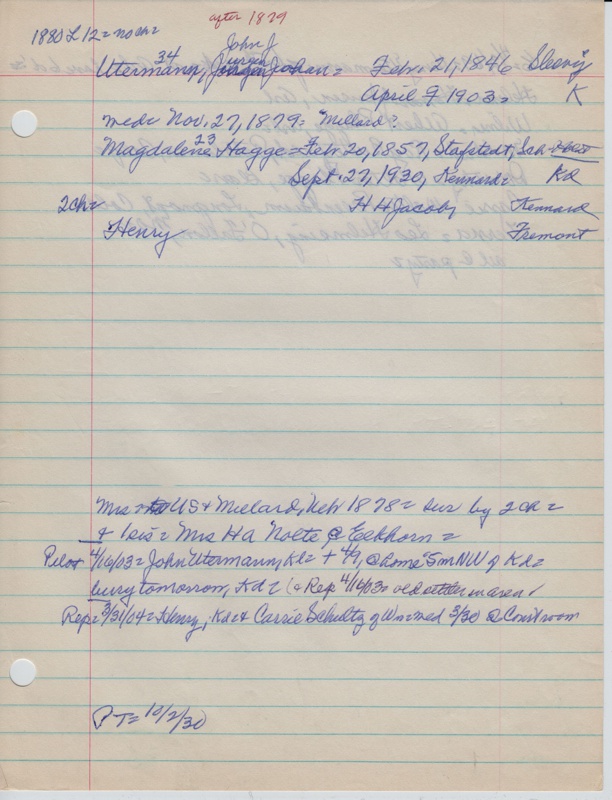 after 1879
1880 L 12 = no ch =
34 John J
Utermann, Jurgen Johan = Febr. 21, 1846 Slesvig
April 9 1903 = K
med = Nov. 27, 1879 = "Millard?
23
Magdalene Hagge = Febr 20, 1857, Stafstedt,
Sept. 27, 1930, Kennard = Kd
2 ch = H H Jacoby Kennard
Henry Fremont
Mrs = to US & Millard, Nebr 1878 = sur by 2 ch =
+ 1 sis = Mrs Ha Nolte @ Eekhorn =
Pilot 4/16/03 = John Utermann, Kd = + 4/9, @ home 5 m NW of Kd =
bury tomorrow, Kd = (& Rep 4/14/03 = old settler in area
Rep = 3/31/04 = Henry, Kd & Carrie Schultz of Wn = med 3/30 @ Courtroom
PT = 10/2/30